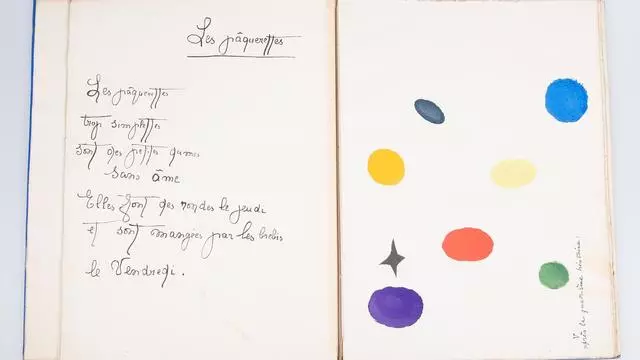 Les pâquerettes
Les pâquerettes
trop simplettes
sont des petites dames
sans âme
Elles font des rondes le jeudi
et sont mangées par les brebis
le Vendredi.
après la quatrième